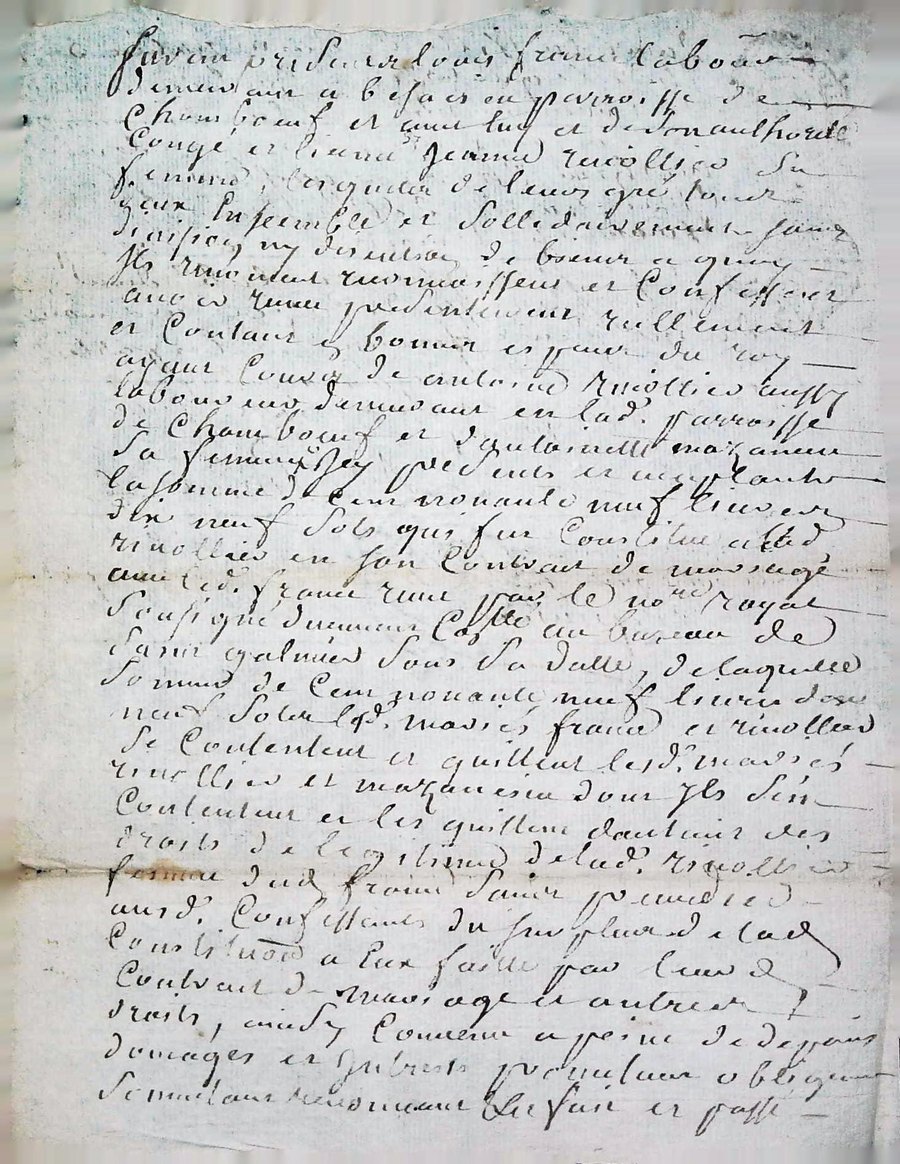 furent presents louis franc labour
demeurant a besacieu parroisse de
Chambœuf et avec luy et de son authorite
Congé et licance Jeanne rivollier sa
femme, lesquels de leurs gré tous
deux Ensemble et sollidairement sans
division ny discution de biens a quoy
Ils renoncent reconnoissent et Confessent
avoir receu presentement reellement
et Contant en bonnes espece du roy
ayant Cours de antoine rivollier aussy
laboureur demeurant en lad. parroisse
de Chambœuf et d'antoinette mazancieu
sa femme Icy presents et acceptants
la somme de Cent nonante neuf livres
dix neuf sols que fut Constitué a lad
rivollier en son Contrat de mariage
avec led. franc receu par le nore royal
soussigné duement Collé au bureau de
saint galmier sous sa datte, de laquelle
somme de Cent nonante neuf livres dix
neuf sols lesd. mariés franc et rivollier
se Contentent et quittent lesd. mariés
rivollier et mazancieu dont Ils s'en
Contentent et les quittent d'autant des
droits de legitime de lad. rivollier
femme dud franc sans prejudice
ausd. Confessants du surplus de lad
Constitution a Eux faitte par leurd
Contrat de mariage et autres
droits, ainsy Convenu a peine de depans
domages et Interests promettant obligeant
soumettant renonceant &c fait et passé